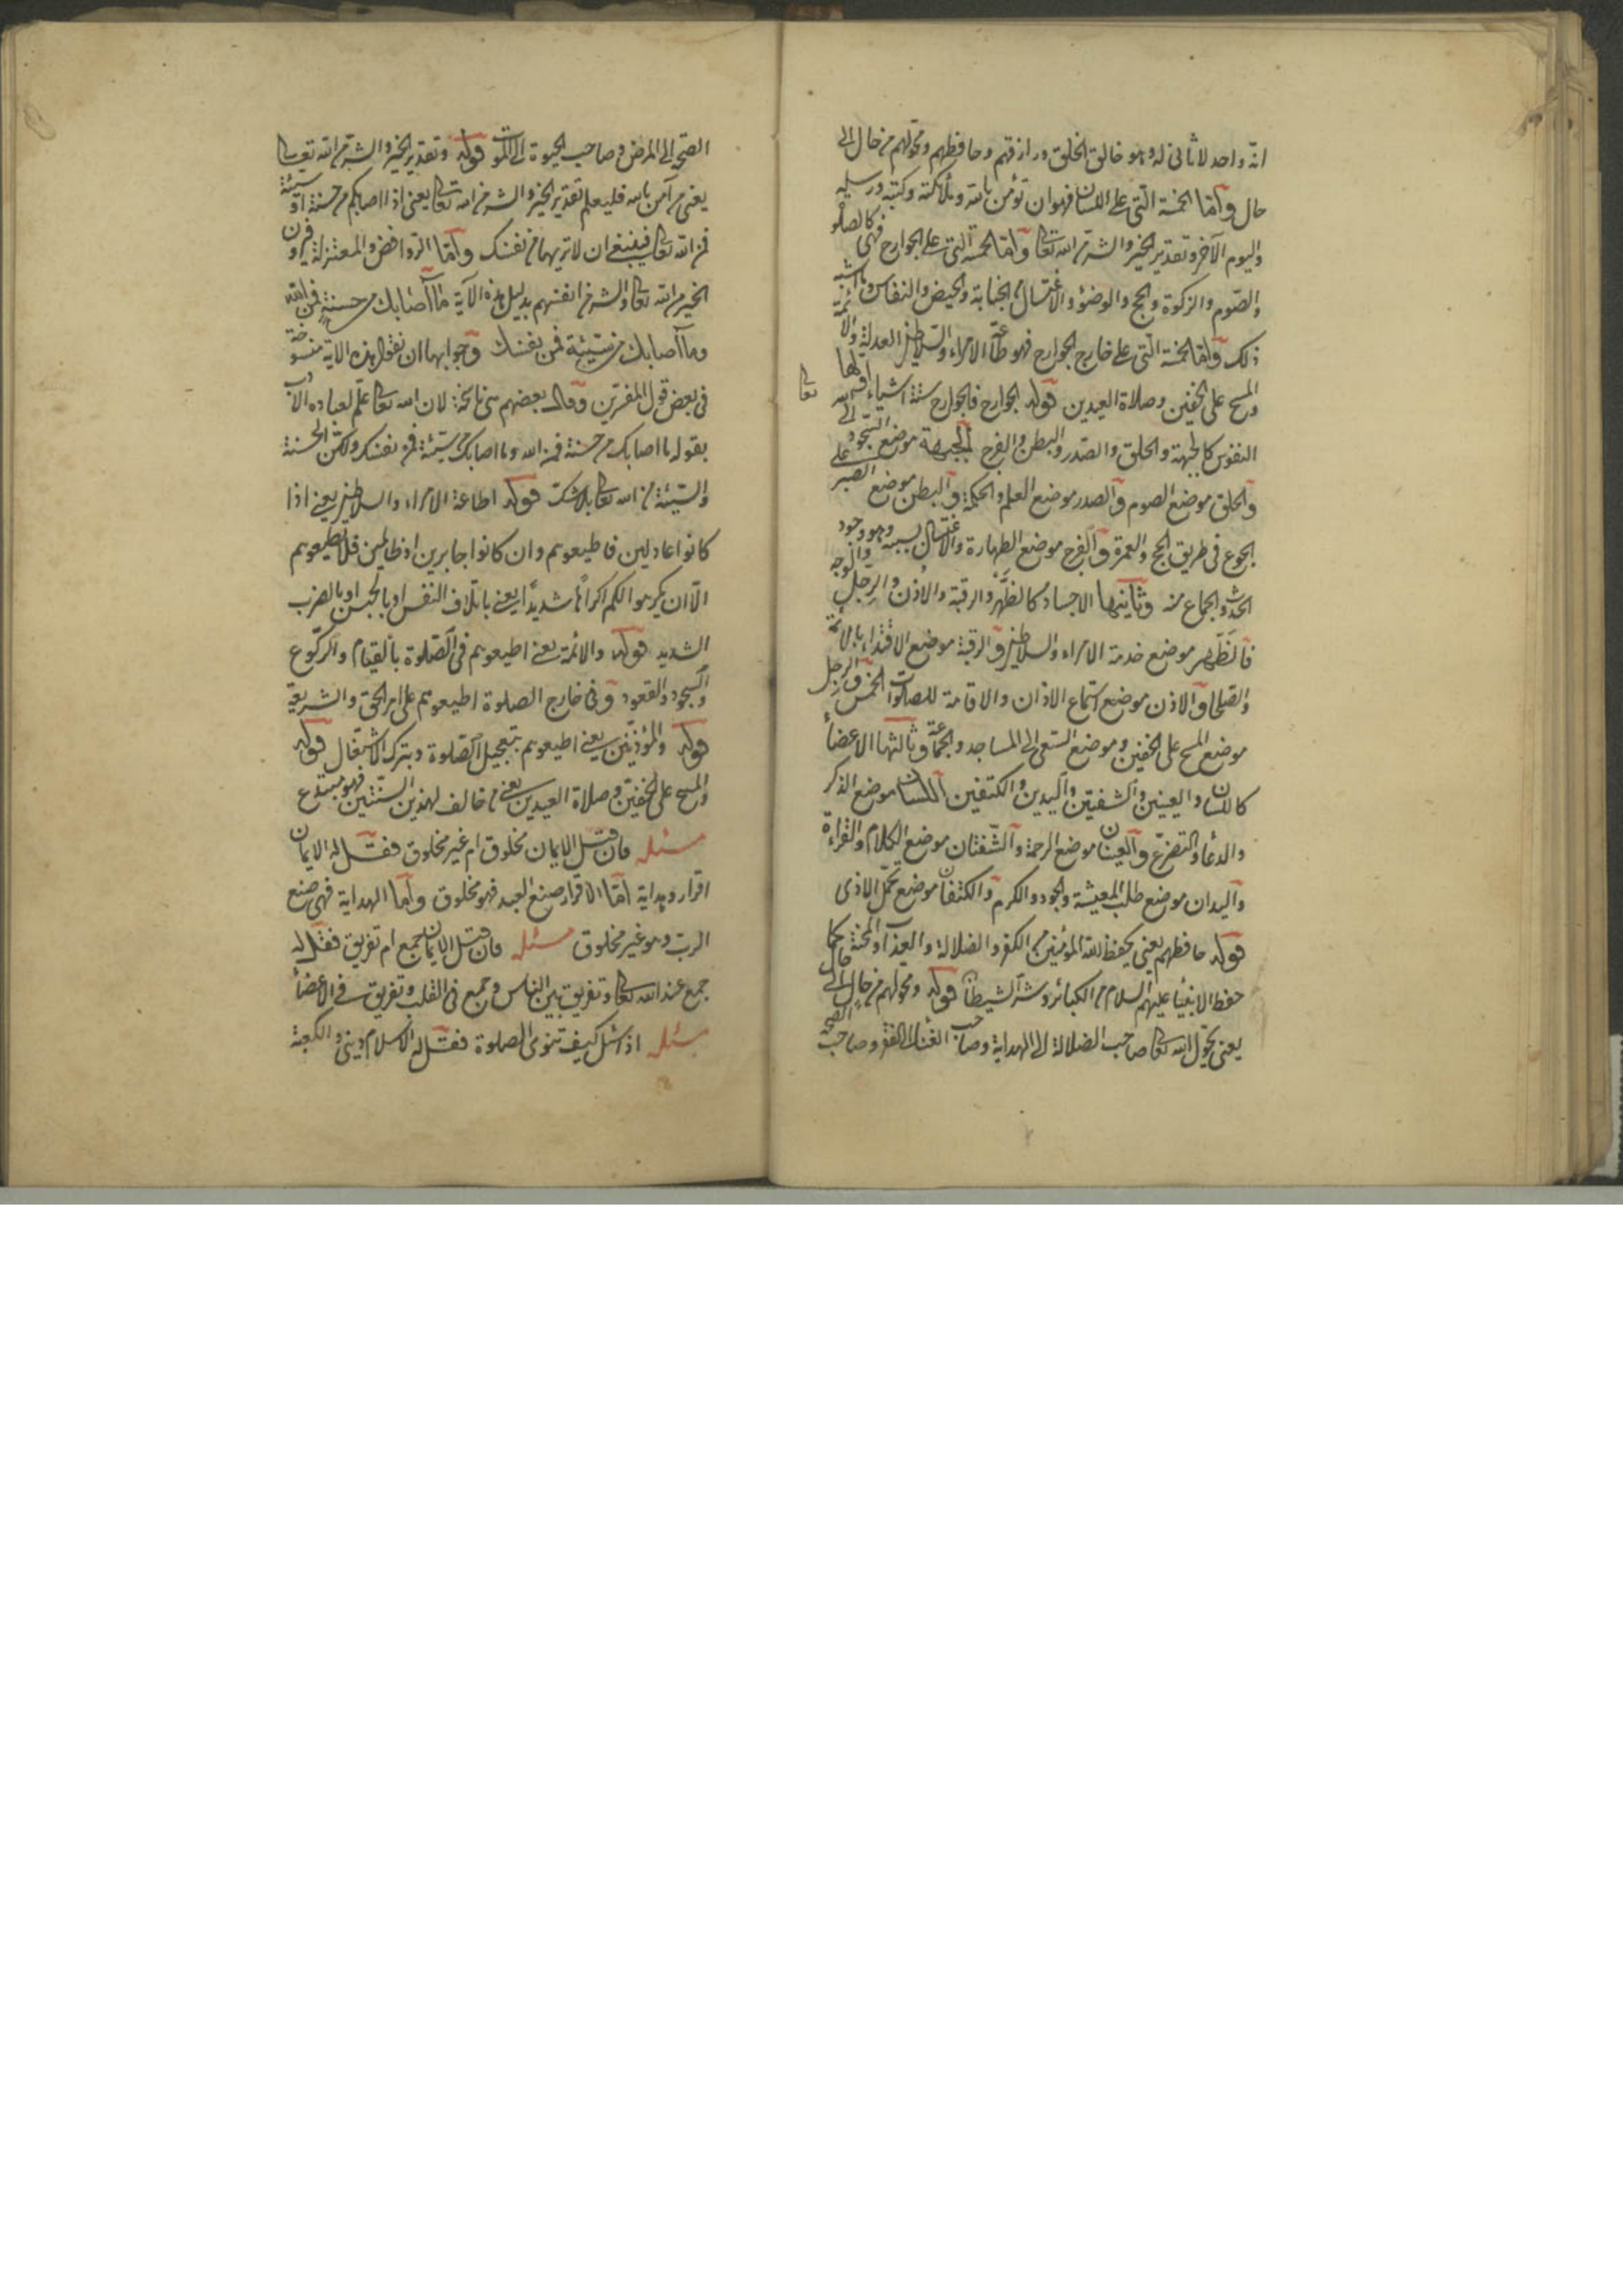 انه واحد لا ثانى له وهو خالق الخلق ورازقهم وحافظهم ومحولهم من حال الى
حال واما الخمسة التى على اللسان فهو ان تؤمن بالله وملائكته وكتبه ورسله
واليوم الآخر وتقدير الخير والشر من الله تعالى واما الخمسة التى على الجوارح فهى كالصلوة
والصوم والزكوة والحج والوضوء والاغتسال من الجنابة والحيض والنفاس وما اشبه
ذلك واما الخمسة التى على خارج الجوارح فهو طاعة الامراء والسلاطين العدلة والائمة
والمسح على الخفين وصلاة العيدين قوله الجوارح فالجوارح ستة اشياء اولها
النفوس كالجبهة والحلق والصدر والبطن والفرج الجبهة موضع السجود لله تعالى
والحلق موضع الصوم والصدر موضع العلم والحكمة والبطن موضع الصبر على
الجوع فى طريق الحج والعمرة والفرج موضع الطهارة والاغتسال بسببه وهو وجود
الحدث والجماع منه وثانيها الاجساد كالظهر والرقبة والاذن والرجل والوجه
فالظهر موضع خدمة الامراء والسلاطين والرقبة موضع الاقتداء بالائمة
والصلحا والاذن موضع استماع الاذان والاقامة للصلوات الخمس والرجل
موضع المسح على الخفين وموضع السعى الى المساجد والجماعة وثالثها الاعضاء
كاللسان والعينين والشفتين واليدين والكتفين اللسان موضع الذكر
والدعاء والتضرع والعينان موضع الرحمة والشفتان موضع الكلام والقراءة
واليدان موضع طلب المعيشة والجود والكرم والكتفان موضع تحمل الاذى
قوله حافظهم يعنى يحفظ الله المؤمنين من الكفر والضلالة والعذاب والمحنة كما
حفظ الانبياء عليهم السلام من الكبائر وشر الشيطان قوله ومحولهم من حال الى حال
يعنى يحول الله تعالى صاحب الضلالة الى الهداية وصاحب الغناء الى الفقر وصاحب الصحة
الصحة الى المرض وصاحب الحيوة الى الموت قوله وتقدير الخير والشر من الله تعالى
يعنى من آمن بالله فليعلم تقدير الخير والشر من الله تعالى يعنى اذا اصابكم من حسنة او سيئة
فمن الله تعالى فينبغى ان لا تريهما من نفسك واما الروافض والمعتزلة فيرون
الخير من الله تعالى والشر من انفسهم بدليل هذه الآية ما اصابك من حسنة فمن الله
وما اصابك من سيئة فمن نفسك وجوابها ان نقول هذه الآية منسوخة
فى بعض قول المفسرين وقال بعضهم هى ناسخة لان الله تعالى علم لعباده الادب
بقوله ما اصابك من حسنة فمن الله وما اصابك من سيئة فمن نفسك ولكن الحسنة
والسيئة من الله تعالى بلا شك قوله اطاعة الامراء والسلاطين يعنى اذا
كانوا عادلين فاطيعوهم وان كانوا جابرين او ظالمين فلا تطيعوهم
الا ان يكرهوا لكم اكراها شديدا يعنى باتلاف النفس او بالحبس او بالضرب
الشديد قوله والائمة يعنى اطيعوهم فى الصلوة بالقيام والركوع
والسجود والقعود وفى خارج الصلوة اطيعوهم على امر الحق والشريعة
قوله والمؤذنين يعنى اطيعوهم بتعجيل الصلوة وبترك الاشتغال قوله
والمسح على الخفين وصلاة العيدين يعنى من خالف لهذين السنتين فهو مبتدع
مسئله فان قيل الايمان مخلوق ام غير مخلوق فقل له الايمان
اقرار وهداية اما الاقرار صنع العبد فهو مخلوق واما الهداية فهى صنع
الرب وهو غير مخلوق مسئله فان قيل الايمان جمع ام تفريق فقل له
جمع عند الله تعالى وتفريق بين الناس وجمع فى القلب وتفريق فى الاعضاء
مسئله اذا سئل كيف تنوى الصلوة فقل له الاسلام دينى والكعبة